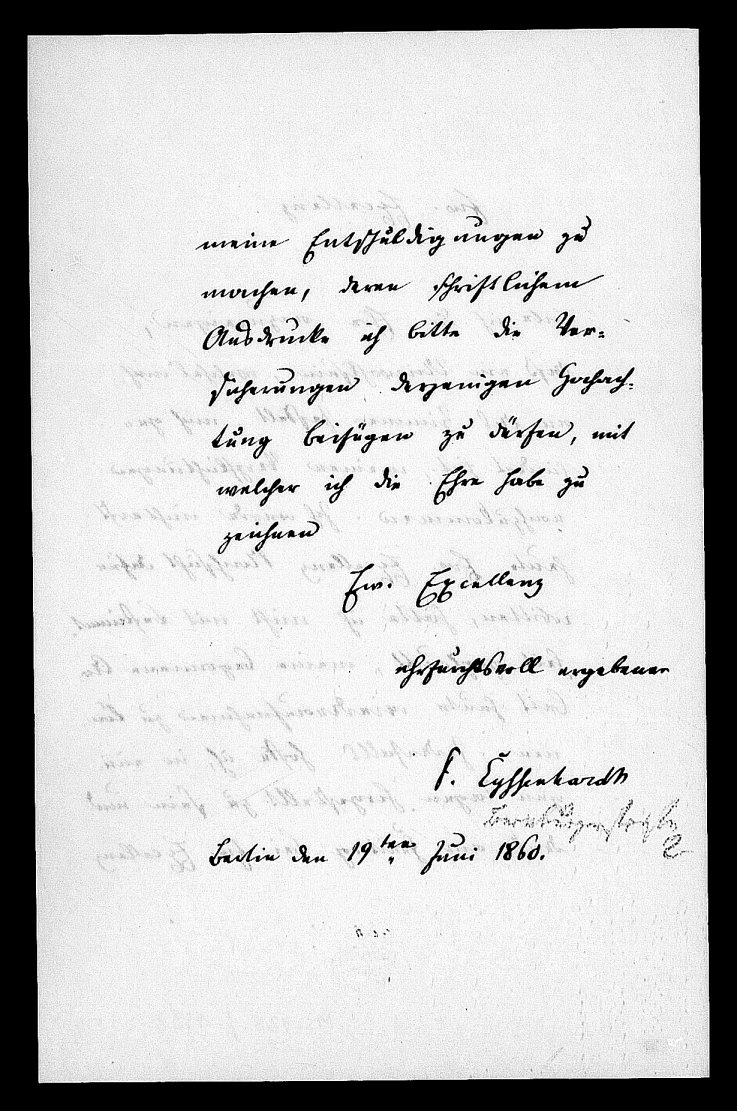 meine Entschuldigungen zu
machen, deren schriftlichem
Ausdrucke ich bitte die Ver-
sicherungen derjenigen Hochach-
tung beifügen zu dürfen, mit
welcher ich die Ehre habe zu
zeichnen
Ew. Excellenz
ehrfurchtsvoll ergebener
F. Eyssenhardt
Berlin den 19ten Juni 1860.